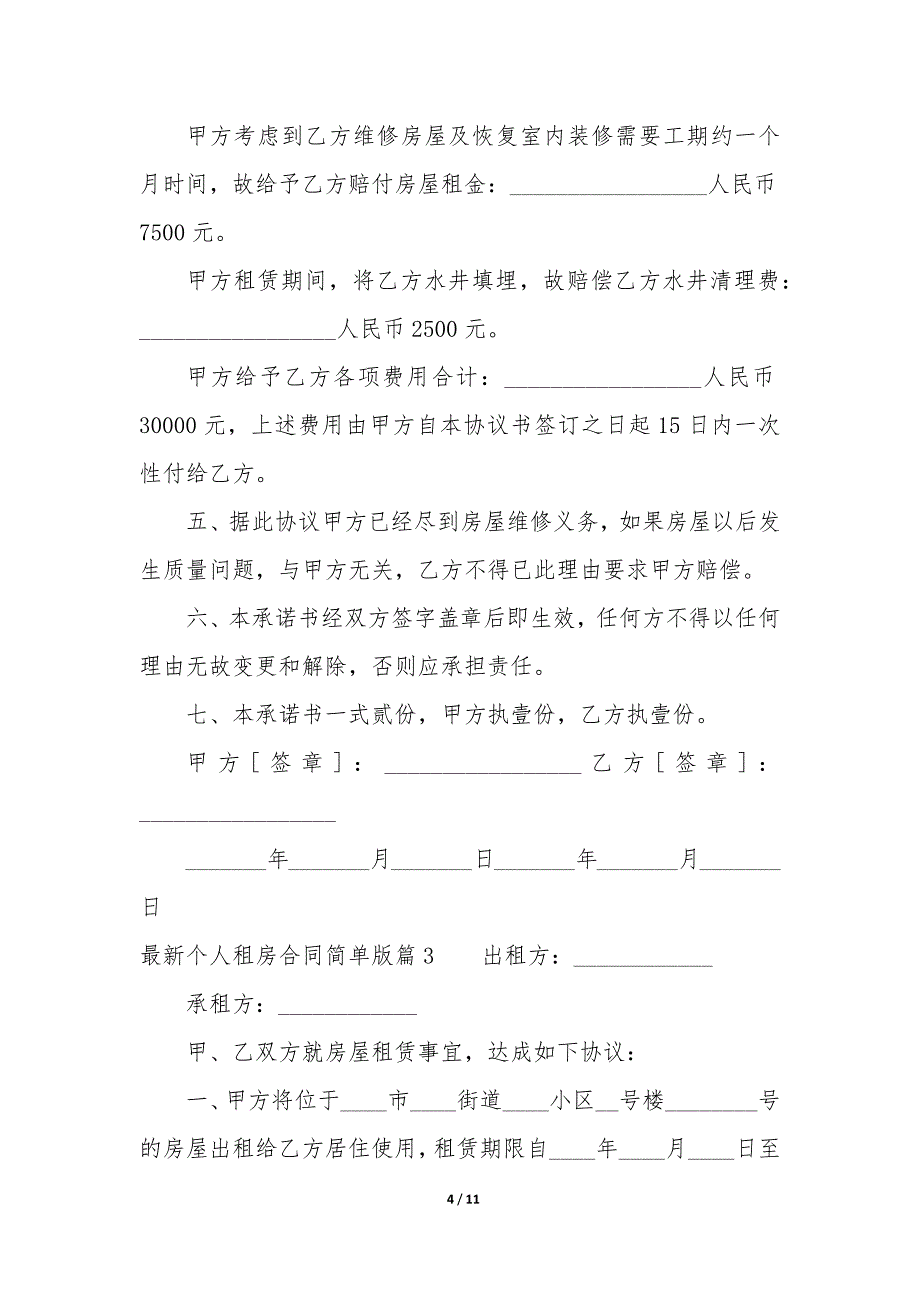 甲方考虑到乙方维修房屋及恢复室内装修需要工期约一个
月时间，故给予乙方赔付房屋租金：_________________人民币
7500 元。
甲方租赁期间，将乙方水井填埋，故赔偿乙方水井清理费：
_________________人民币 2500 元。
甲方给予乙方各项费用合计：_________________人民币
30000 元，上述费用由甲方自本协议书签订之日起 15 日内一次
性付给乙方。
五、据此协议甲方已经尽到房屋维修义务，如果房屋以后发
生质量问题，与甲方无关，乙方不得已此理由要求甲方赔偿。
六、本承诺书经双方签字盖章后即生效，任何方不得以任何
理由无故变更和解除，否则应承担责任。
七、本承诺书一式贰份，甲方执壹份，乙方执壹份。
甲方[签章]：_________________乙方[签章]：
_________________
_______年_______月_______日_______年_______月_______
日
最新个人租房合同简单版篇 3 出租方：____________
承租方：____________
甲、乙双方就房屋租赁事宜，达成如下协议：
一、甲方将位于____市____街道____小区__号楼________号
的房屋出租给乙方居住使用，租赁期限自____年____月____日至
4 / 11